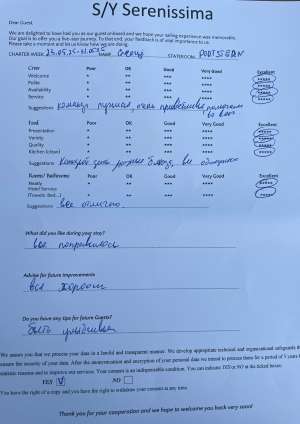 S/Y Serenissima
Dear Guest
We are delighted to have had you as our guest onboard and we hope your sailing experience was memorable.
Our goal is to offer you a five-star journey. To that end, your feedback is of vital importance to us.
Please take a moment and let us know how we are doing.
CHARTER WEEK NAME STATEROOM
Crew Poor OK Good Very Good Excellent
Welcome * ** *** **** *****
Polite * ** *** **** *****
Availability * ** *** **** *****
Service * ** *** **** *****
Suggestions команда помогали
во всем
Food Poor OK Good Very Good Excellent
Presentation * ** *** **** *****
Variety * ** *** **** *****
Quality * ** *** **** *****
Kitchen (clean) * ** *** **** *****
Suggestions каждый день разные блюда, все
Rooms/ Bathrooms Poor OK Good Very Good Excellent
Ready * ** *** **** *****
Hotel Service * ** *** **** *****
(Towels, Bed...) * ** *** **** *****
Suggestions все отлично
What did you like during your stay?
все понравилось
Advise for future improvements
все хорошо
Do you have any tips for future Guests?
быть
We assure you that we process your data in a lawful and transparent manner. We develop appropriate technical and organizational safeguards to
ensure the security of your data. After the anonymization and encryption of your personal data we intend to process them for a period of 5 years for
statistic reasons and to improve our services. Your consent is an indispensable condition. You can indicate YES or NO at the ticked boxes:
YES V NO
You have the right of a copy and you have the right to withdraw your consent in any time.
Thank you for your cooperation and we hope to welcome you back very soon!